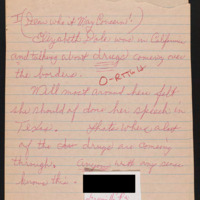 (Dear Who it May Concern!)
Elizabeth Dole was in Calif.
and talking about drugs coming over
the borders.
O-RTLH
Well most around here felt
she should of done her speech in
Texas. thats where most
of the drugs are coming
through. Anyone with any sense
know this.